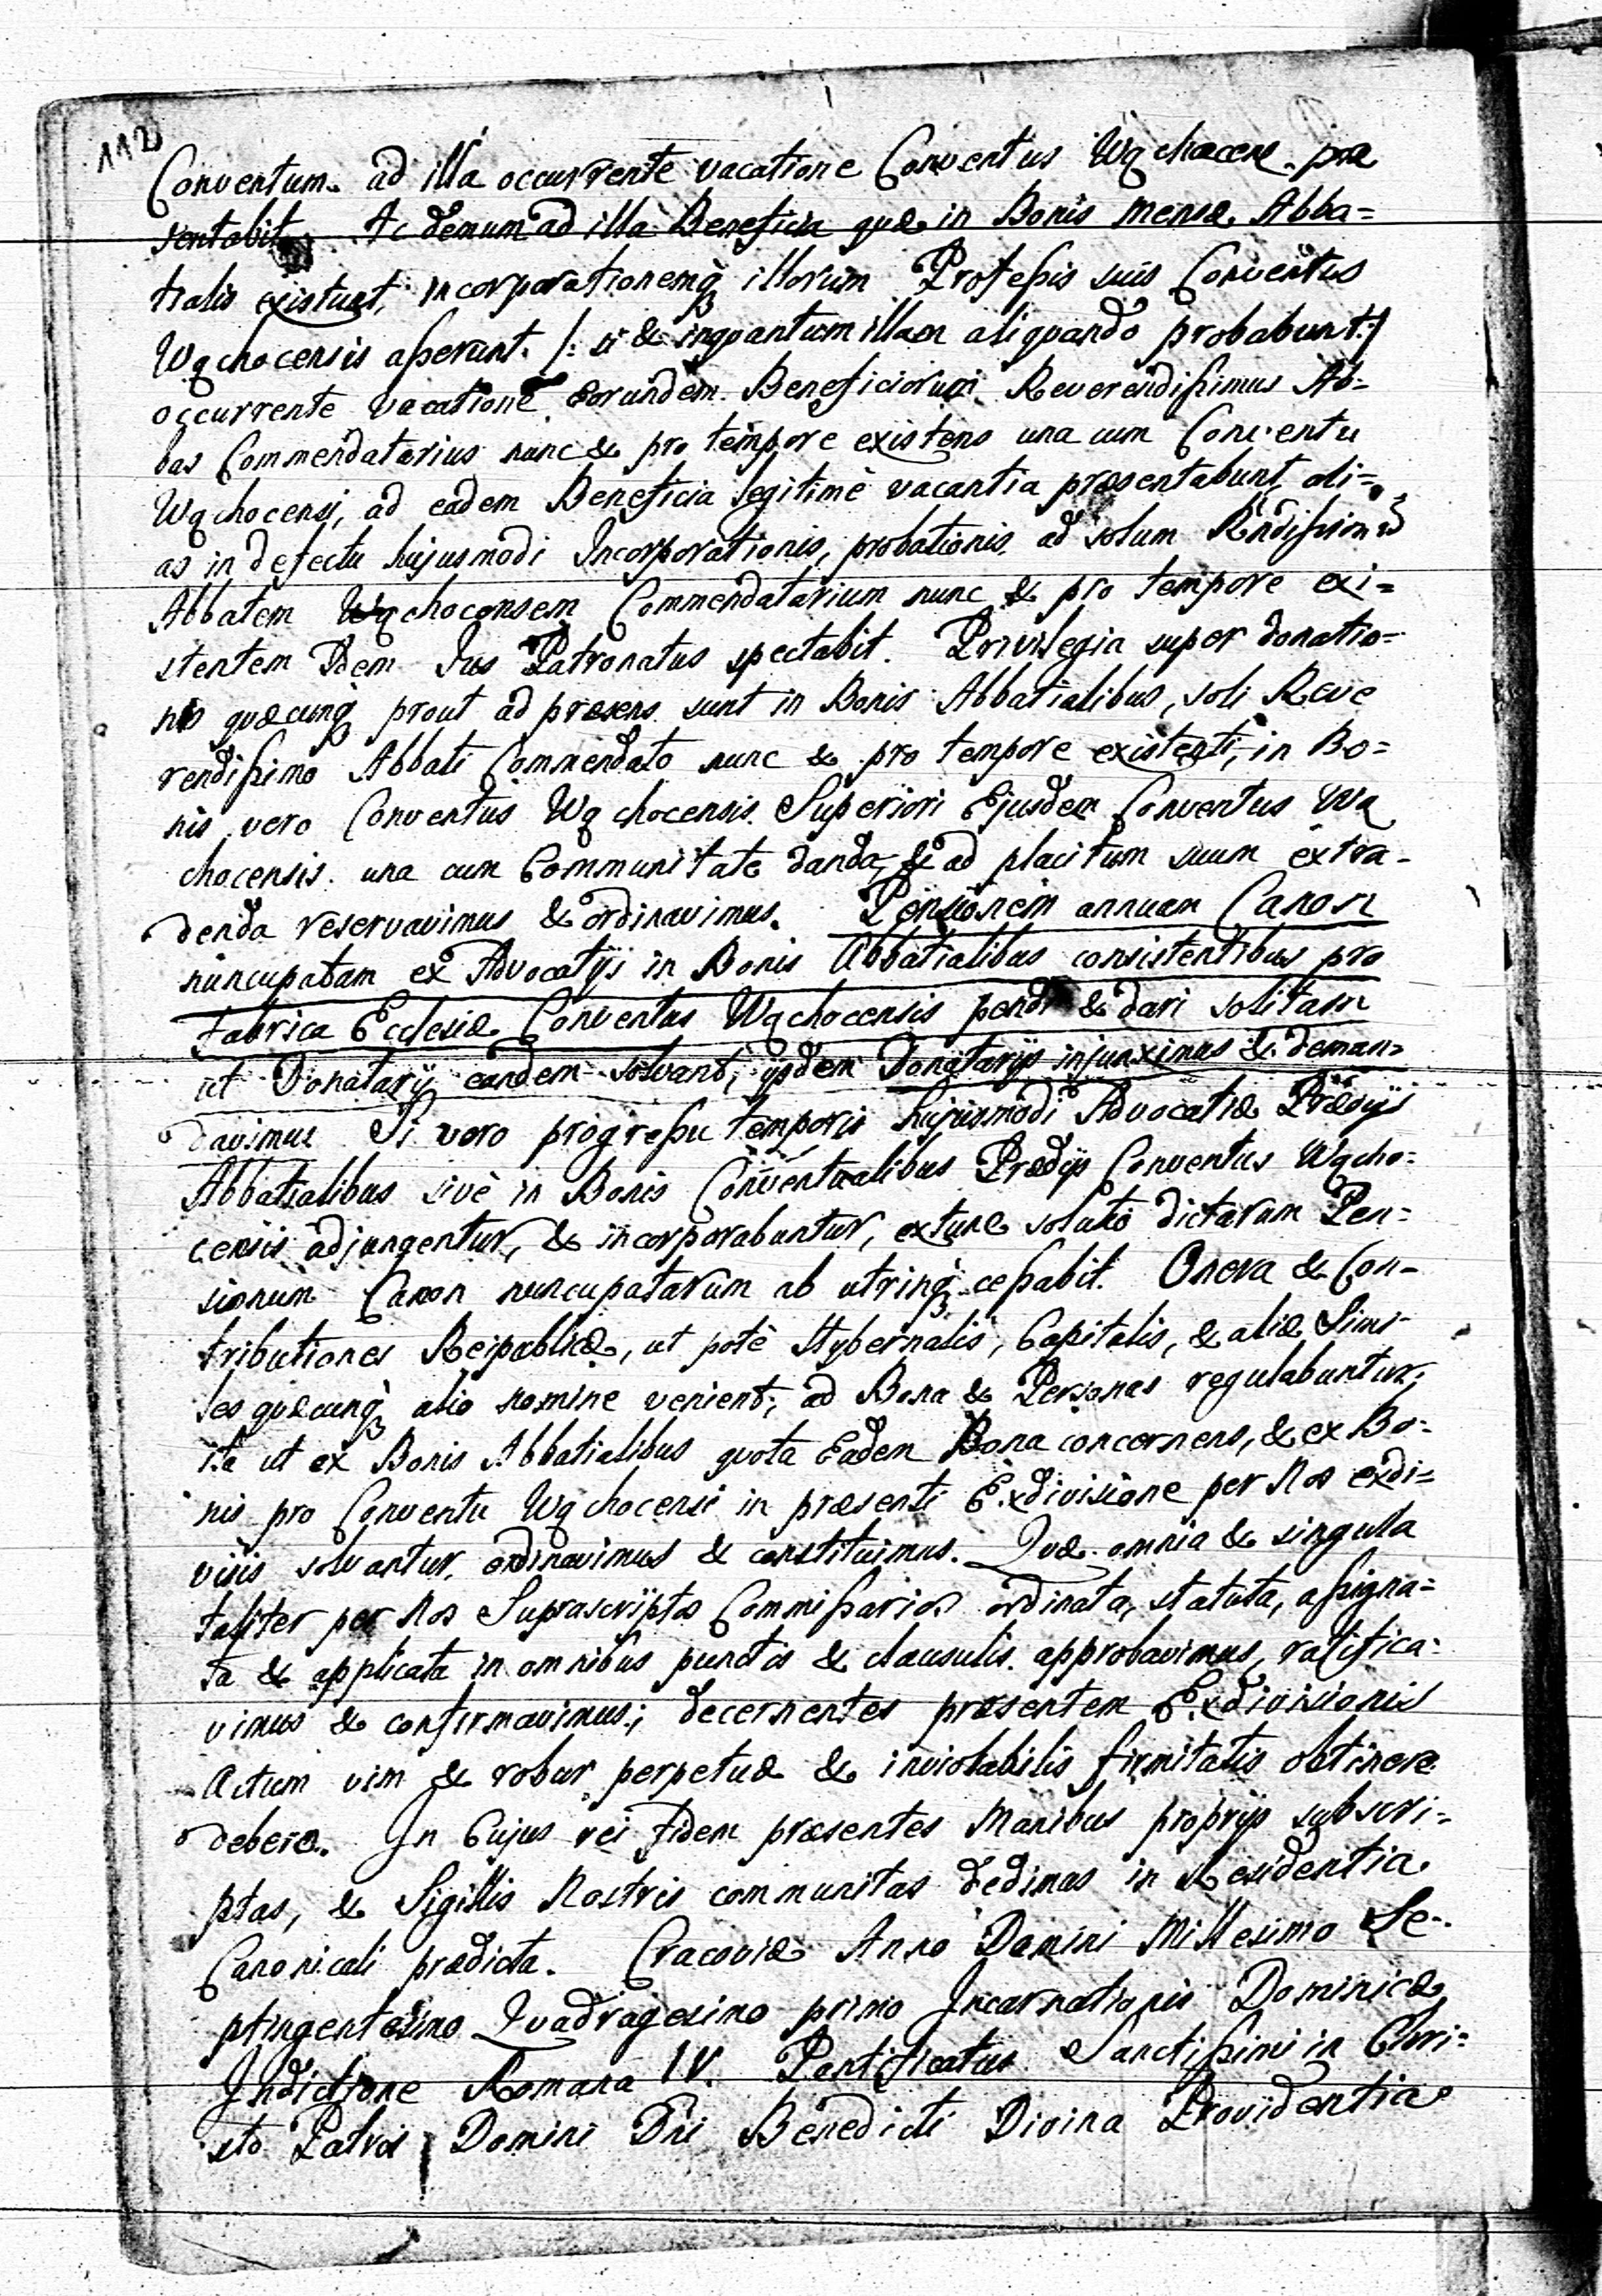 112
Conventum. ad illa occurrente vacatione Conventus Wąchocen. præ
sentabit. Ac demum ad illa Beneficia quæ in Bonis Mensæ Abba=
tialis existunt, incorporationemq́ illorum Profeſsis suis Conventus
Wąchocensis aſserunt. /: si & inquantum illam aliquando probabunt :/
occurrente vacatione eorundem Beneficiorum Reverendiſsimus Ab=
bas Commendatarius nunc & pro tempore existens una cum Conventu
Wąchocensi, ad eadem Beneficia legitimè vacantia præsentabunt, ali=
as in defectu hujusmodi Incorporationis, probationis ad solum Rndiſsimũ
Abbatem Wąchocensem Commendatarium nunc & pro tempore exi=
stentem Idem Jus Patronatus spectabit. Privilegia super donatio=
nes quæcunq́ prout ad præsens sunt in Bonis Abbatialibus, soli Reve
rendiſsimo Abbati Commendato nunc & pro tempore existenti, in Bo=
nis vero Conventus Wąchocensis Superiori Ejusdem Conventus Wą
chocensis una cum Communitate danda, & ad placitum suum extra=
denda reservavimus & ordinavimus. Pensionem annuam Canon
nuncupatam ex Advocatijs in Bonis Abbatialibus consistentibus pro
Fabrica Ecclesiæ Conventus Wąchocensis pendi & dari solitam
ut Donatarij eandem solvant, ijsdem Donatarijs injunximus & deman=
davimus Si vero progreſsu temporis hujusmodi Advocatiæ Prædijs
Abbatialibus sivè in Bonis Conventualibus Prædijs Conventus Wącho=
censis adjungentur, & incorporabuntur, extunc solutio dictarum Pen=
sionum Canon nuncupatarum ab utrinq́ ceſsabit. Onera & Con=
tributiones Reipublicæ, ut potè Hybernalis, Capitalis, & aliæ Simi=
les quæcunq́ alio nomine venient, ad Bona & Personas regulabuntur,
ita ut ex Bonis Abbatialibus quota Eadem Bona concernens, & ex Bo=
nis pro Conventu Wąchocensi in præsenti Exdivisione per Nos exdi=
visis solvantur, ordinavimus & constituimus. Quæ omnia & singula
taliter per Nos Suprascriptos Commiſsarios ordinata, statuta, aſsigna=
ta & applicata in omnibus punctis & clausulis approbavimus, ratifica=
vimus & confirmavimus; decernentes præsentem Exdivisionis
Actum vim & robur perpetuæ & inviolabilis firmitatis obtinere
debere. In Cujus rei Fidem præsentes Manibus proprijs subscri=
ptas, & Sigillis Nostris communitas dedimus in Residentia
Canonicali prædicta. Cracoviæ Anno Domini Millesimo Se=
ptingentesimo Quadragesimo primo Incarnationis Dominicæ
Indictione Romana IV. Pontificatus Sanctiſsimi in Chri=
sto Patris Domini Dni Benedicti Divina Providentia